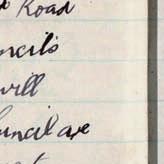 Road
ncil's
will
ouncil are